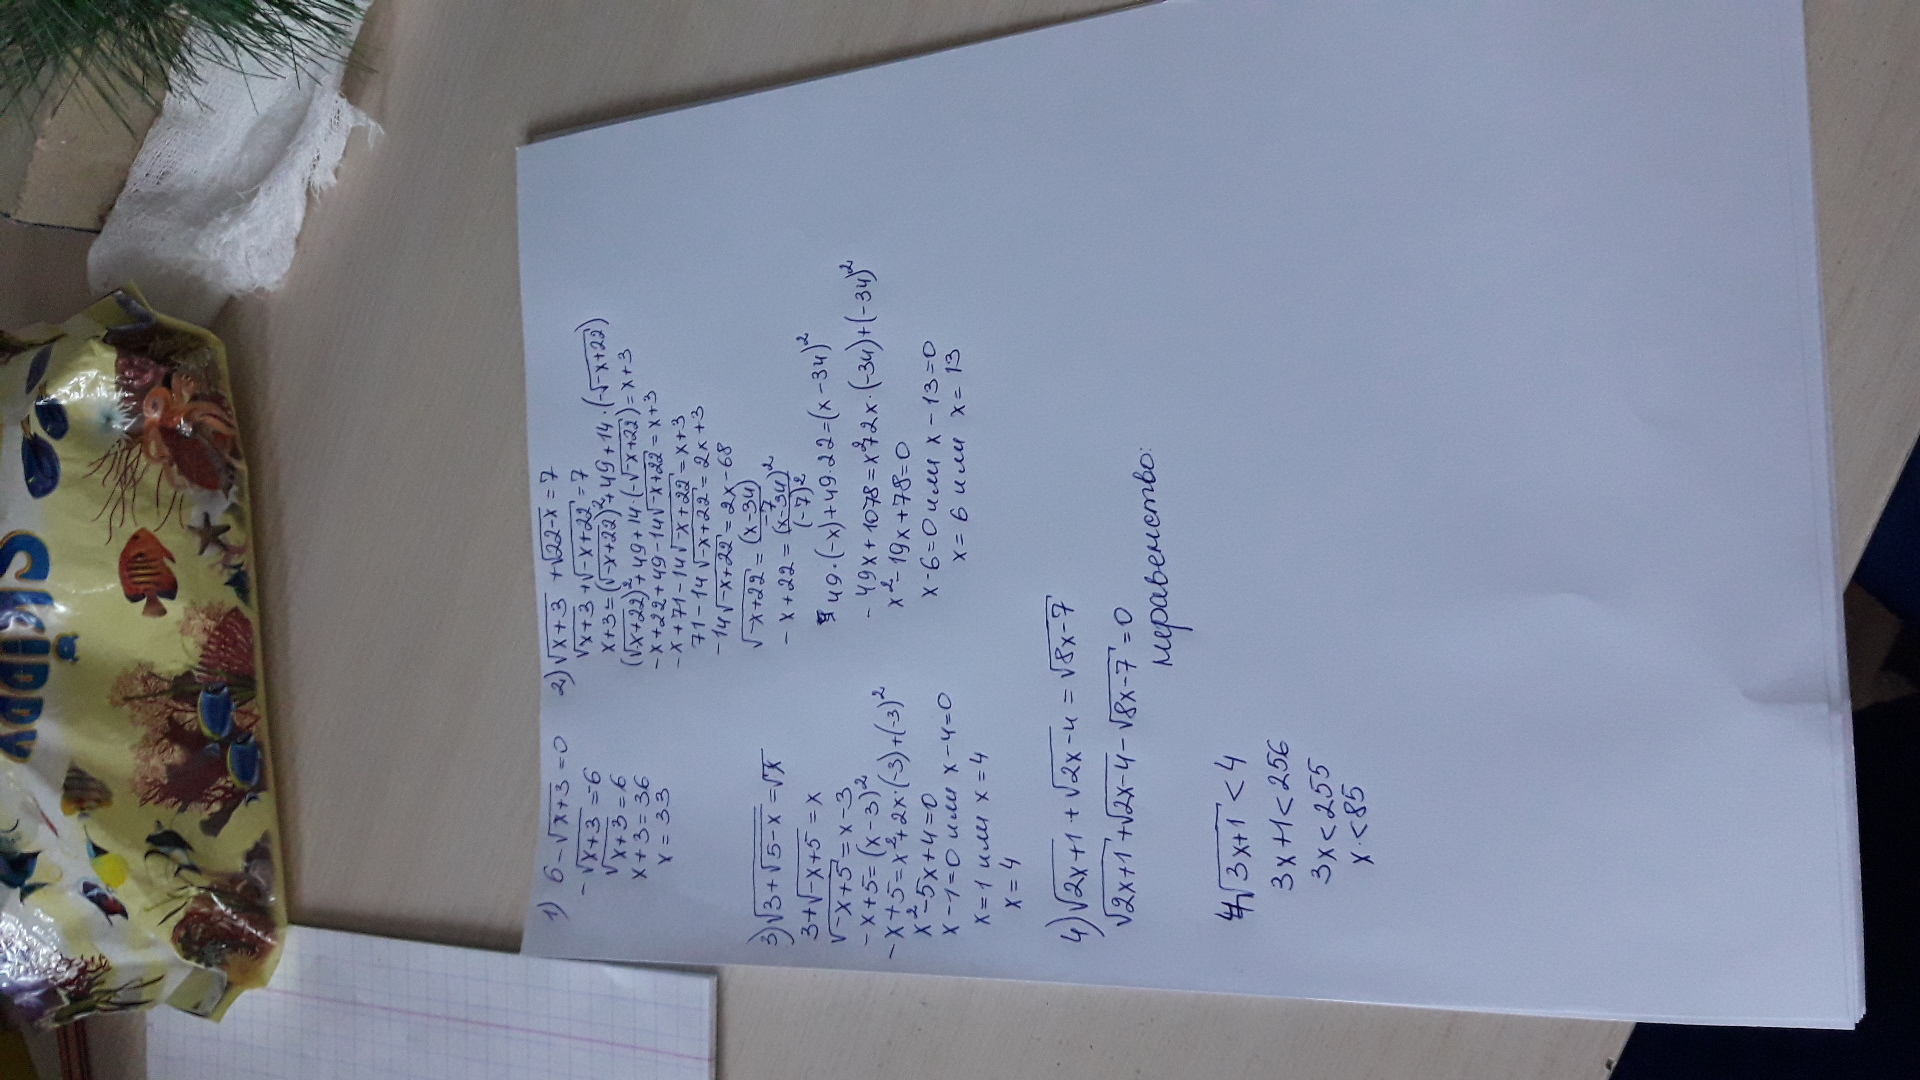 SKIPPY
1) 6-√x+3=0
-√x+3=-6
√x+3=6
x+3=36
x=33
2) √x+3+√22-x=7
√x+3+√-x+22=7
x+3=(√-x+22)²+49+14·(-√-x+22)
(√-x+22)²+49+14·(-√-x+22)=x+3
-x+22+49-14√-x+22=x+3
-x+71-14√-x+22=x+3
71-14√-x+22=2x+3
-14√-x+22=2x-68
√-x+22=(x-34)/-7
-x+22=(x-34)²/(-7)²
49·(-x)+49·22=(x-34)²
-49x+1078=x²+2x·(-34)+(-34)²
x²-19x+78=0
x-6=0 или x-13=0
x=6 или x=13
3) √3+√5-x=√x
3+√-x+5=x
√-x+5=x-3
-x+5=(x-3)²
-x+5=x²+2x·(-3)+(-3)²
x²-5x+4=0
x-1=0 или x-4=0
x=1 или x=4
x=4
4) √2x+1+√2x-4=√8x-7
√2x+1+√2x-4-√8x-7=0
неравенство:
4√3x+1<4
3x+1<256
3x<255
x<85